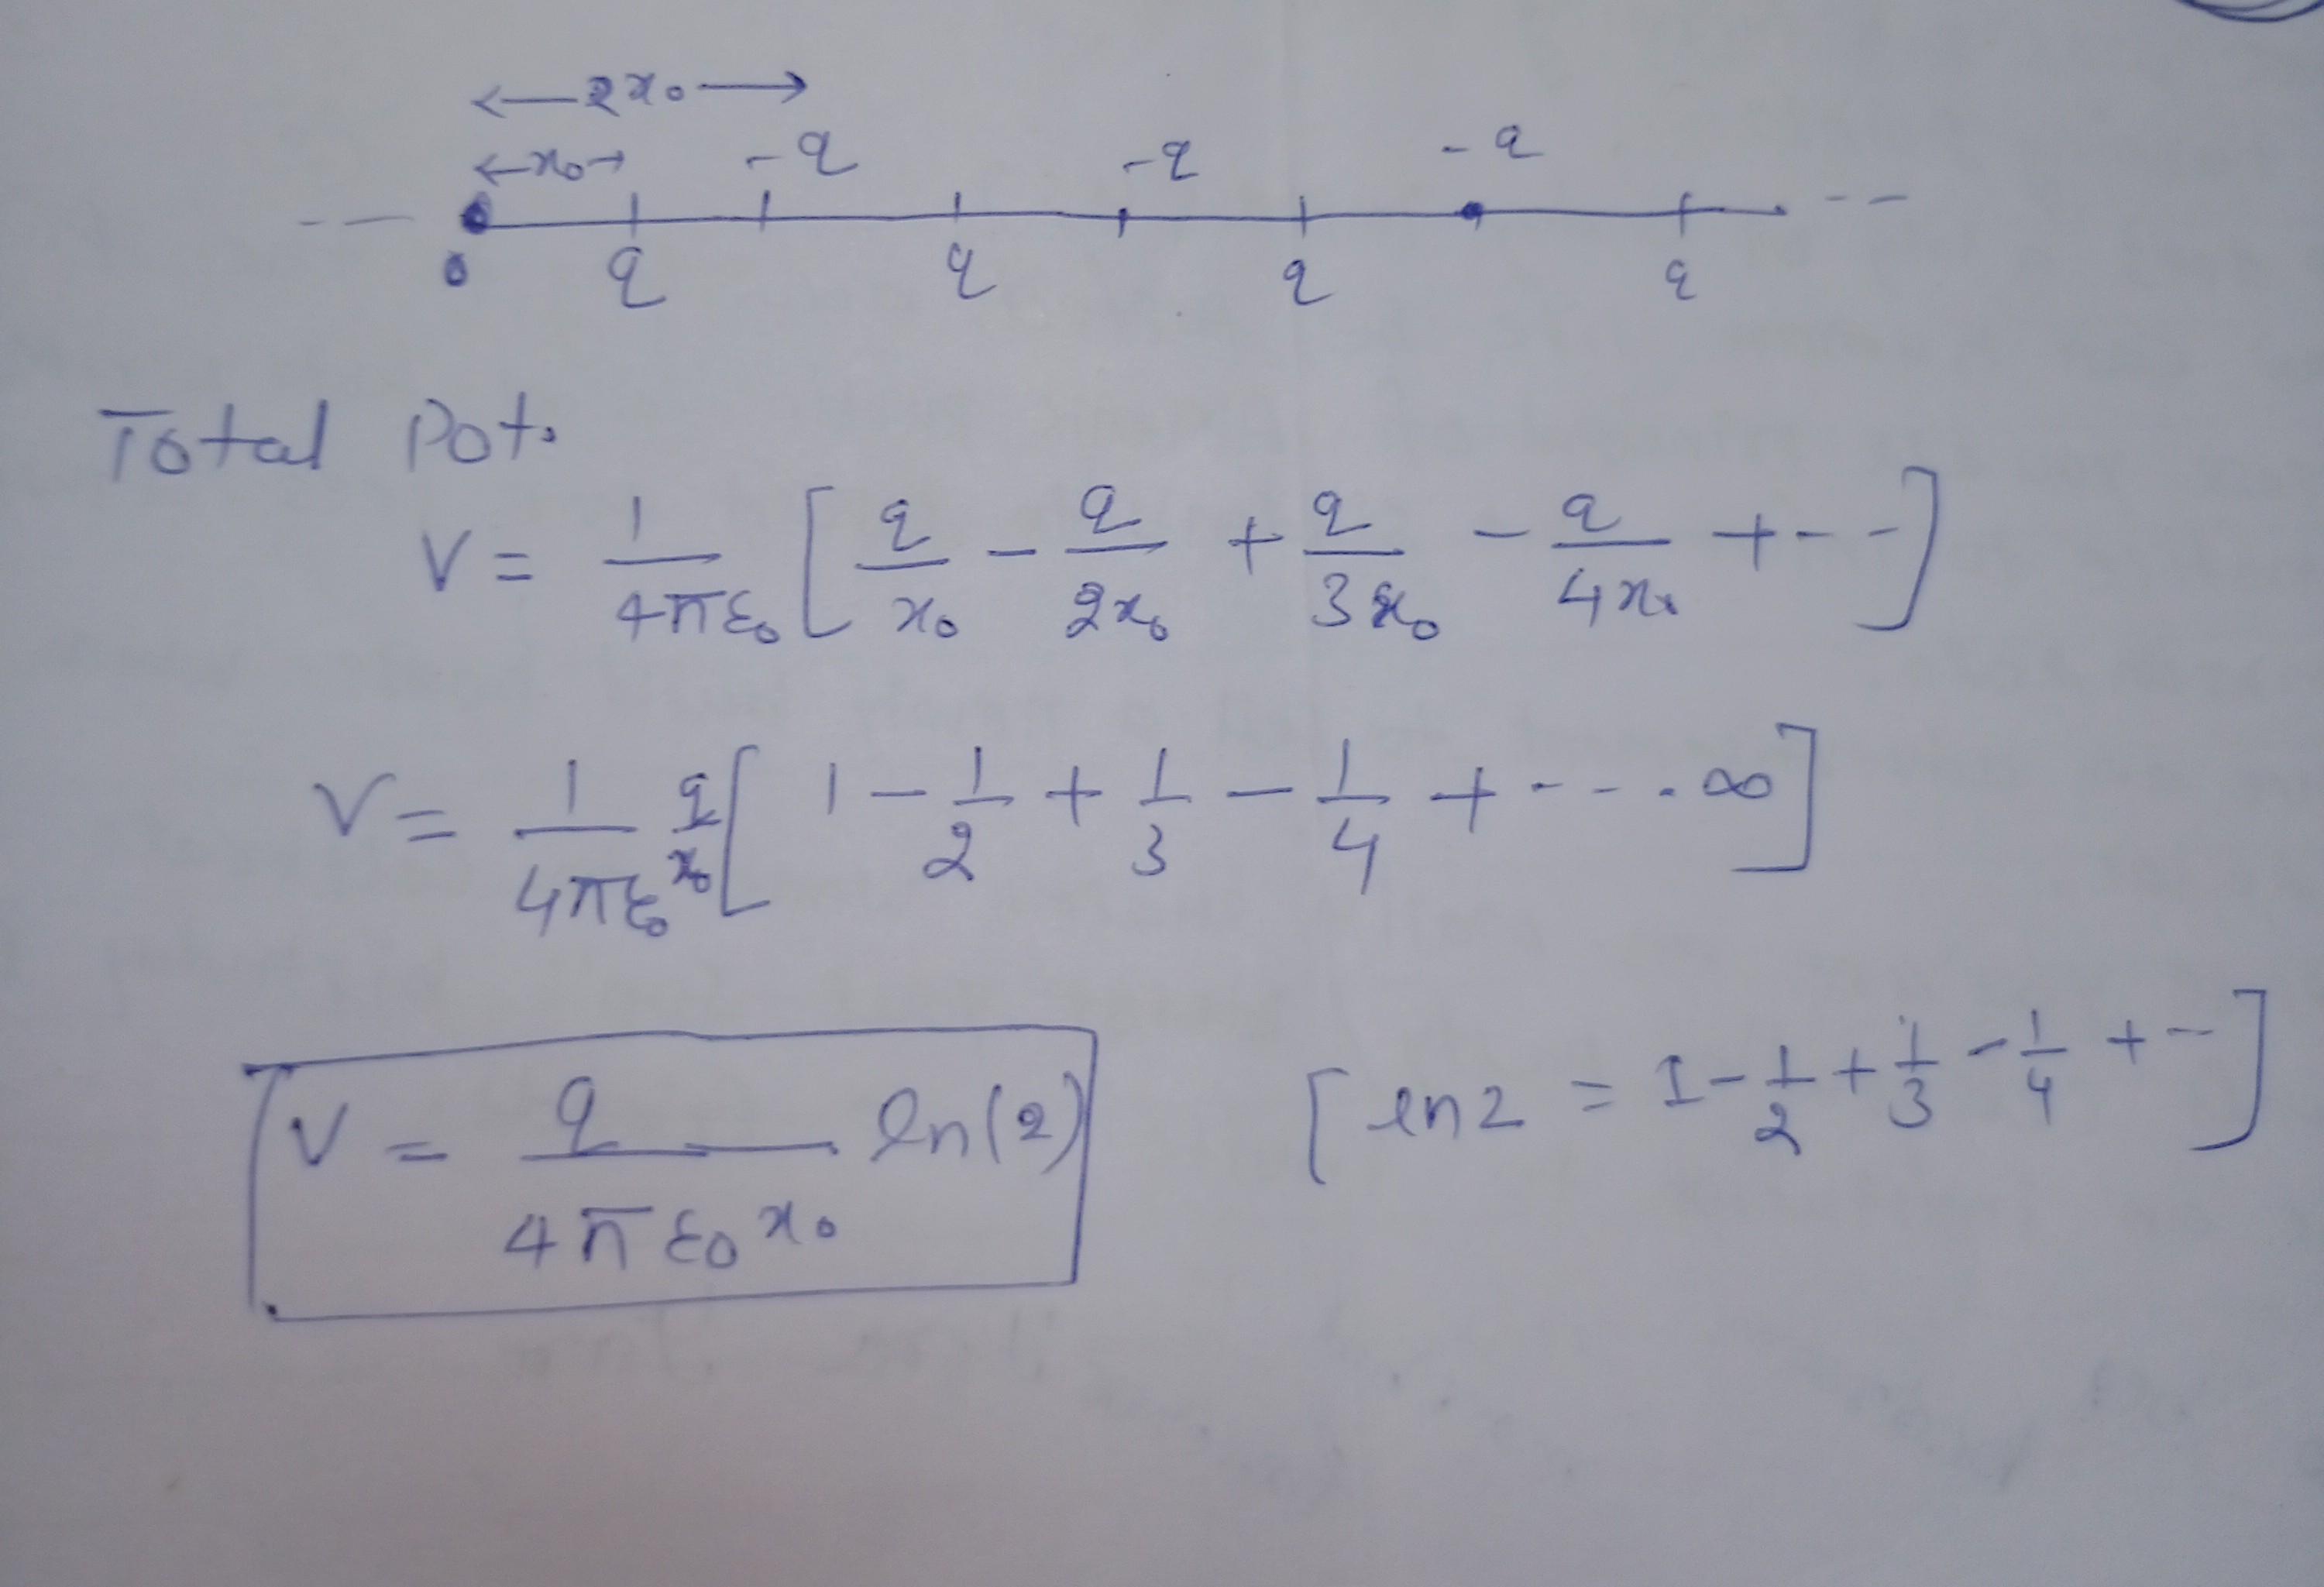 ←— 2x₀ —→
←x₀→ -q -q -q
-- — — --
0 q q q q
Total Pot.
V = 1/4πε₀ [ q/x₀ - q/2x₀ + q/3x₀ - q/4x₀ + - - ]
V = 1/4πε₀ q/x₀ [ 1 - 1/2 + 1/3 - 1/4 + - - - . ∞ ]
V = q/4πε₀x₀ ln(2) [ ln2 = 1 - 1/2 + 1/3 - 1/4 + - ]